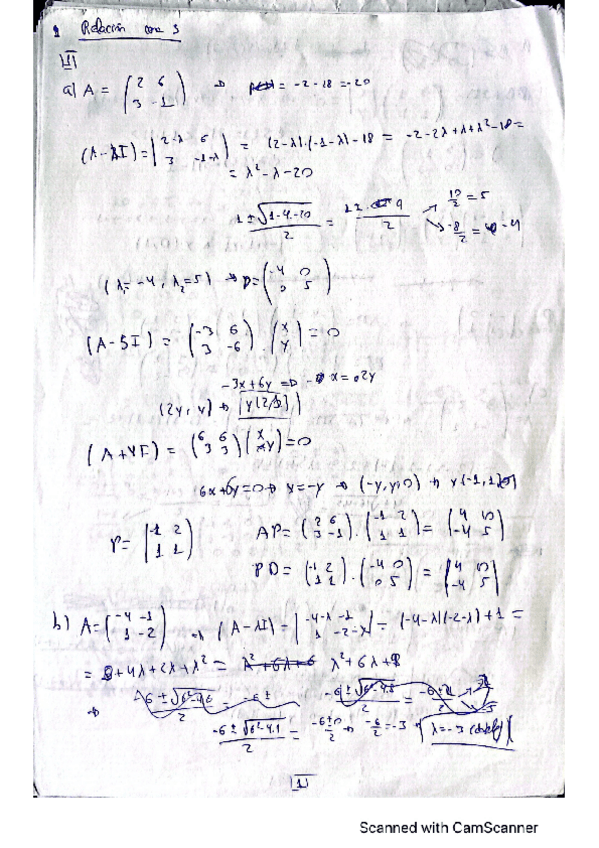 1 Relación 3
1
a) A = (2 6 / 3 -1) → = -2-18 = -20
(A-λI) = |2-λ 6 / 3 -1-λ| = (2-λ).(-1-λ)-18 = -2-2λ+λ+λ²-18 =
= λ²-λ-20
= 9 / 2 → 10/2 = 5
→ -8/2 = -4
(λ₁=-4, λ₂=5) → D = (-4 0 / 0 5)
(A-5I) = (-3 6 / 3 -6).(x / y) = 0
-3x+6y =0 → x = 2y
(2y, y) → y(2,1)
(A+4I) = (6 6 / 3 3)(x / y) = 0
6x+6y=0 → x=-y → (-y,y) → y(-1,1)
P = (-1 2 / 1 1) AP = (2 6 / 3 -1).(-1 2 / 1 1) = (4 10 / -4 5)
PD = (-1 2 / 1 1).(-4 0 / 0 5) = (4 10 / -4 5)
b) A = (-4 -1 / 1 -2) → (A-λI) = |-4-λ -1 / 1 -2-λ| = (-4-λ)(-2-λ)+1 =
= 8+4λ+2λ+λ² = λ²+6λ+6 λ²+6λ+
-6±0 / 2 → -6/2 = -3 λ=-3 (doble)
1
Scanned with CamScanner